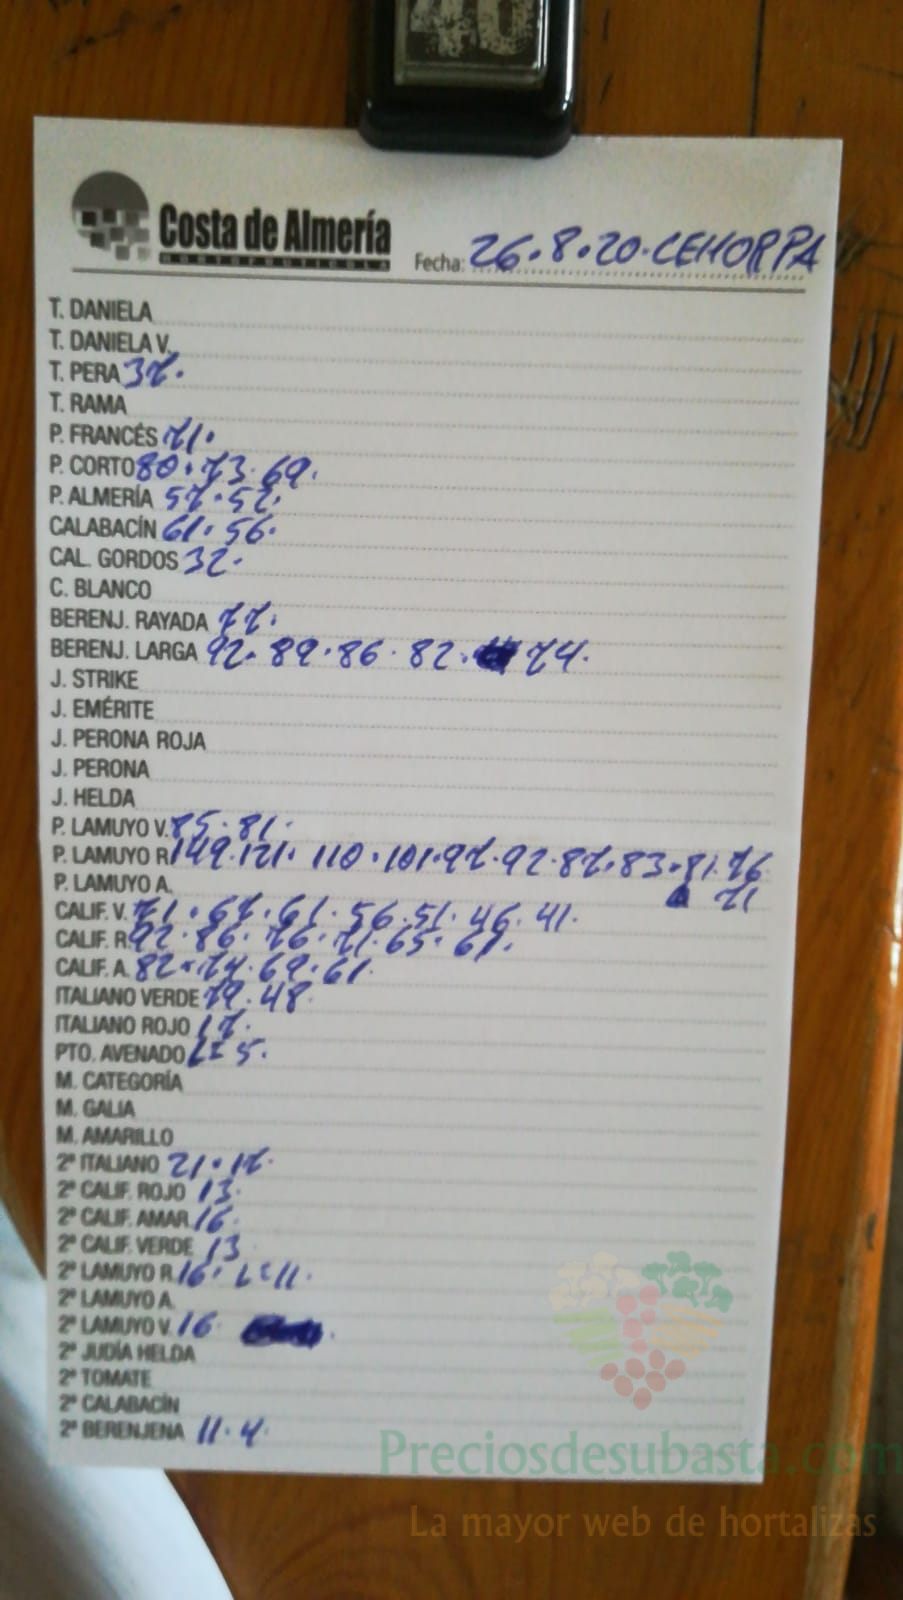 40
Costa de Almería
HORTOFRUTÍCOLA
Fecha: 26.8.20. CEHORPA
T. DANIELA
T. DANIELA V.
T. PERA 37.
T. RAMA
P. FRANCÉS 71.
P. CORTO 80. 73. 69.
P. ALMERÍA 57. 52.
CALABACÍN 61. 56.
CAL. GORDOS 32.
C. BLANCO
BERENJ. RAYADA 77.
BERENJ. LARGA 92. 89. 86. 82. 74.
J. STRIKE
J. EMÉRITE
J. PERONA ROJA
J. PERONA
J. HELDA
P. LAMUYO V. 85. 81.
P. LAMUYO R. 149. 121. 110. 101. 97. 92. 87. 83. 81. 76
P. LAMUYO A. 71
CALIF. V. 71. 67. 61. 56. 51. 46. 41.
CALIF. R. 92. 86. 76. 71. 65. 61.
CALIF. A. 82. 74. 69. 61.
ITALIANO VERDE 79. 48.
ITALIANO ROJO 17.
PTO. AVENADO L= 5.
M. CATEGORÍA
M. GALIA
M. AMARILLO
2ª ITALIANO 21. 17.
2ª CALIF. ROJO 13.
2ª CALIF. AMAR. 16.
2ª CALIF. VERDE 13
2ª LAMUYO R. 16. L=11.
2ª LAMUYO A.
2ª LAMUYO V. 16
2ª JUDÍA HELDA
2ª TOMATE
2ª CALABACÍN
2ª BERENJENA 11. 4.
Preciosdesubasta.com
La mayor web de hortalizas